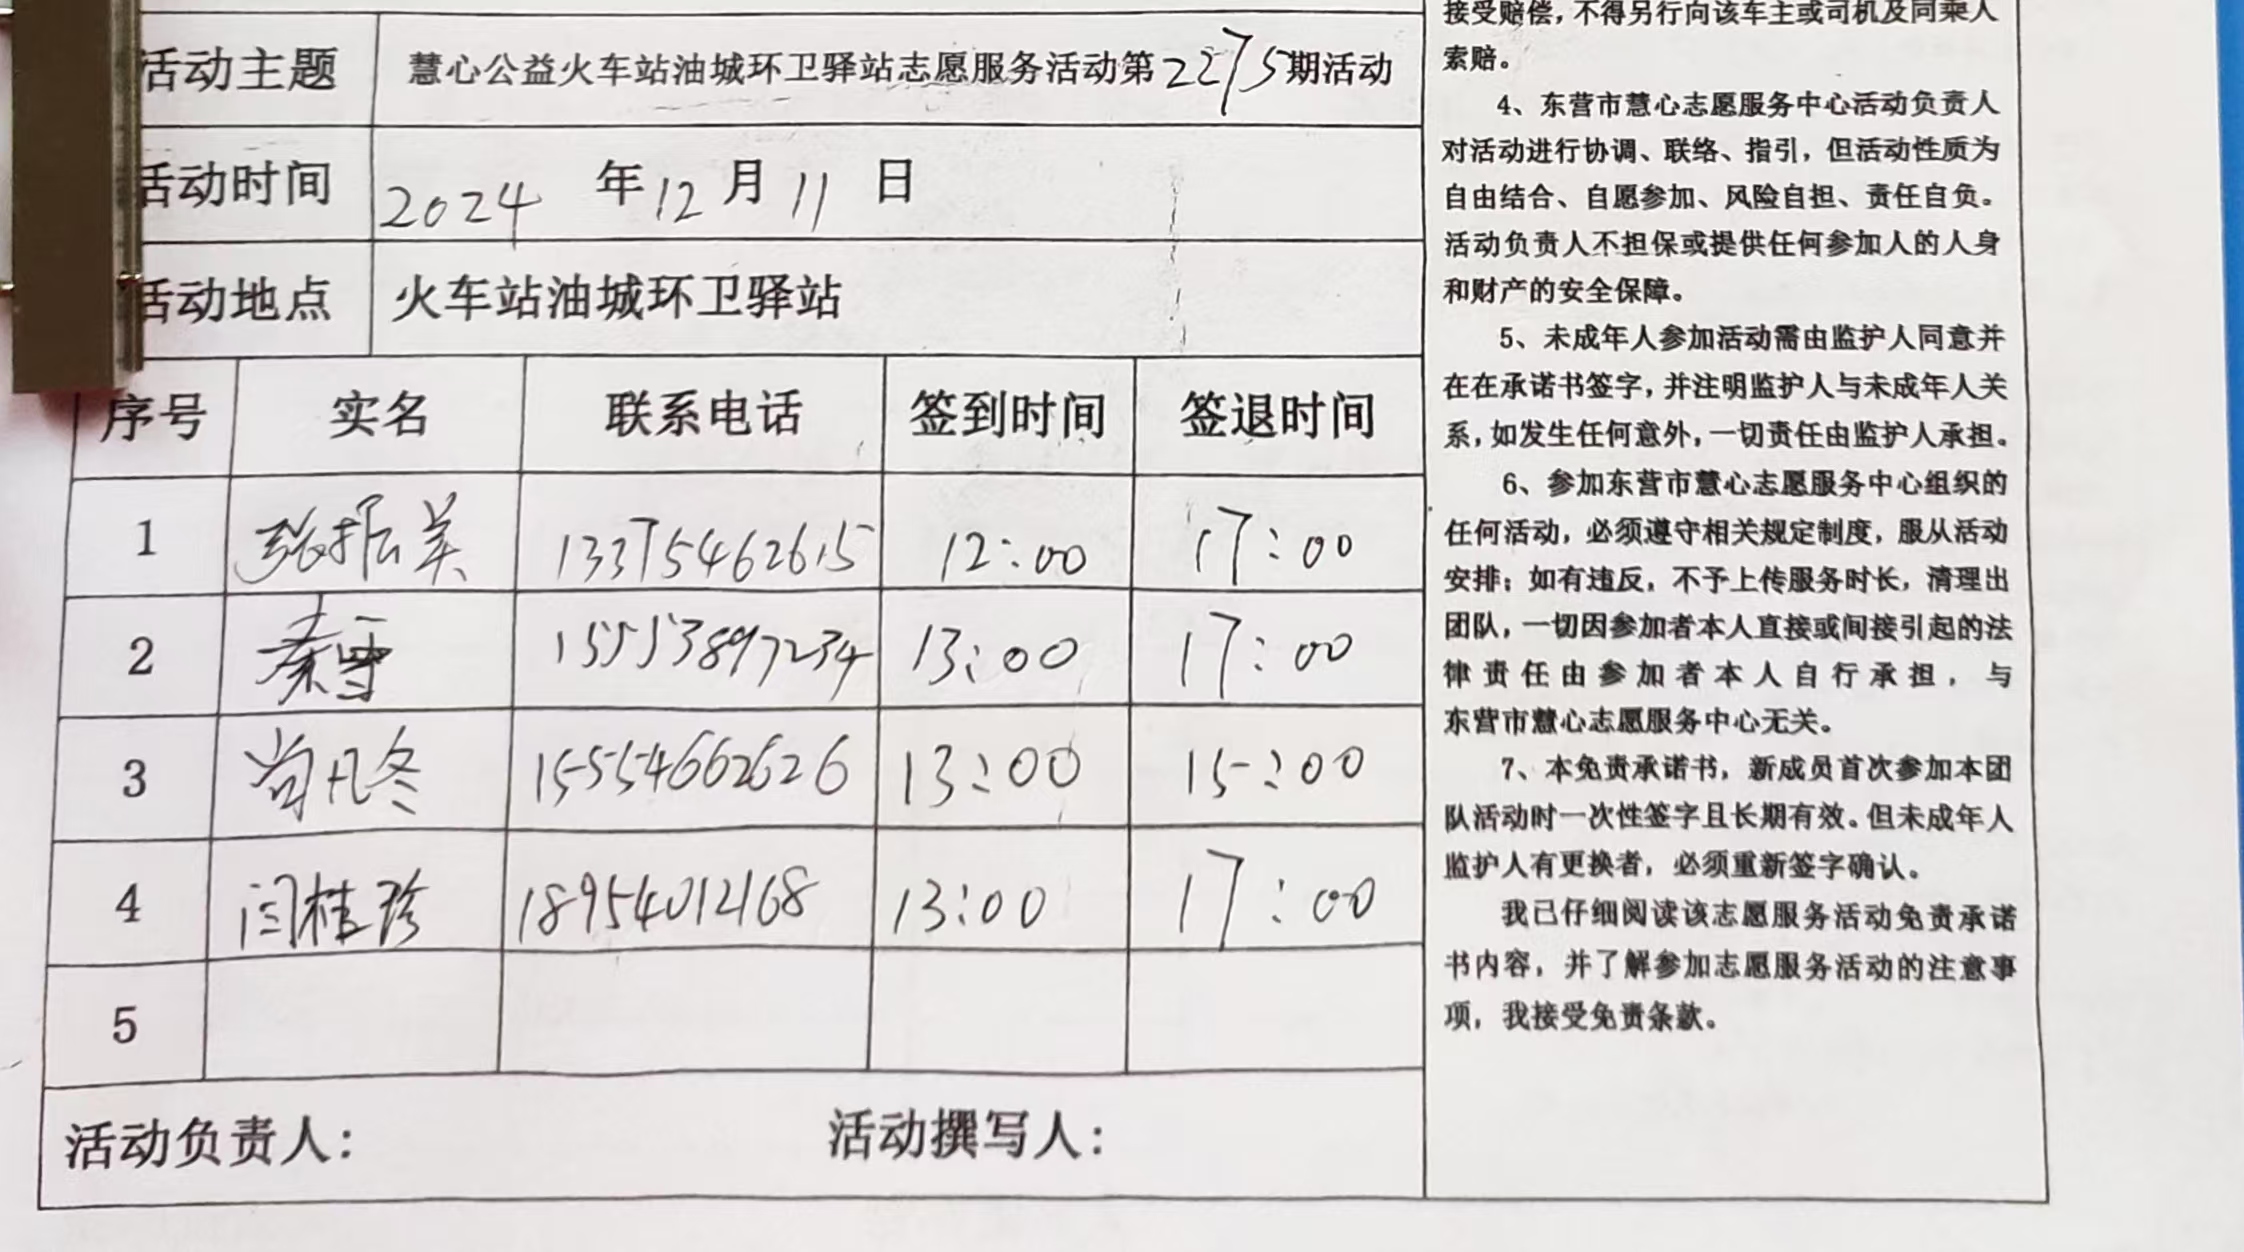 活动主题 慧心公益火车站油城环卫驿站志愿服务活动第2275期活动
活动时间 2024 年 12 月 11 日
活动地点 火车站油城环卫驿站
序号 实名 联系电话 签到时间 签退时间
1 张振美 13375462615 12:00 17:00
2 秦雪 15553897234 13:00 17:00
3 尚凡冬 15554662626 13:00 15:00
4 闫桂珍 18954012168 13:00 17:00
5
活动负责人: 活动撰写人:
接受赔偿,不得另行向该车主或司机及同乘人
索赔。
4、东营市慧心志愿服务中心活动负责人
对活动进行协调、联络、指引,但活动性质为
自由结合、自愿参加、风险自担、责任自负。
活动负责人不担保或提供任何参加人的人身
和财产的安全保障。
5、未成年人参加活动需由监护人同意并
在在承诺书签字,并注明监护人与未成年人关
系,如发生任何意外,一切责任由监护人承担。
6、参加东营市慧心志愿服务中心组织的
任何活动,必须遵守相关规定制度,服从活动
安排;如有违反,不予上传服务时长,清理出
团队,一切因参加者本人直接或间接引起的法
律责任由参加者本人自行承担,与
东营市慧心志愿服务中心无关。
7、本免责承诺书,新成员首次参加本团
队活动时一次性签字且长期有效。但未成年人
监护人有更换者,必须重新签字确认。
我已仔细阅读该志愿服务活动免责承诺
书内容,并了解参加志愿服务活动的注意事
项,我接受免责条款。